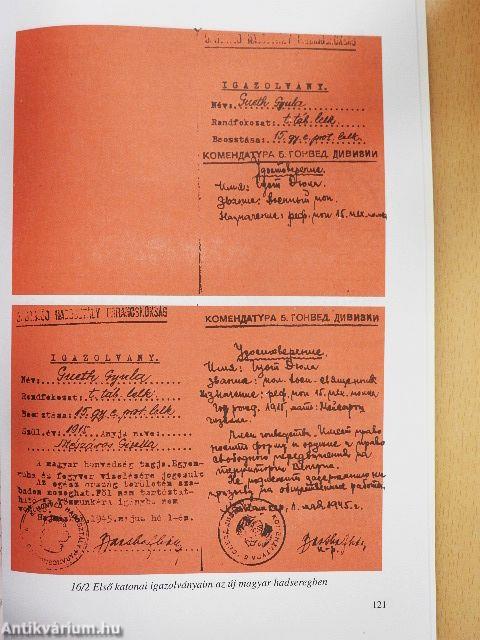 IGAZOLVÁNY.
Név: Gueth Gyula
Rendfokozat: t. táb. lelk.
Beosztása: 15. gy. e. prot. lelk.
КОМЕНДАТУРА 5. ГОНВЕД. ДИВИЗИИ
Удостоверение
Имя: Дюла
Звание: военный
Назначение: реф. 15. мех.
5. HONVÉD HADOSZTÁLY PARANCSNOKSÁG
IGAZOLVÁNY.
Név: Gueth Gyula
Rendfokozat: t. táb. lelk.
Beosztása: 15. gy. e. prot. lelk.
Szül.év: 1915 Anyja neve:
Mészáros Gizella
A magyar honvédség tagja. Egyen-
ruha és fegyver viselésére jogosult
Az egész ország területén sza-
badon mozoghat. Fel nem tartóztat-
ható, közmunkára igénybe nem
1945. május hó 1-én.
КОМЕНДАТУРА 5. ГОНВЕД. ДИВИЗИИ
Удостоверение.
Имя: Дюла
Звание: священник
Назначение: реф. 15. мех.
Год рожд. 1915, мать:
Член гонведства. Имеет право
носить форму и оружие и право
свободного передвижения на
территории Венгрии.
Не подлежит задержанию ни
призыву на общественные работы.
1. май 1945 г.
16/2 Első katonai igazolványaim az új magyar hadseregben
121
Antikvárium.hu